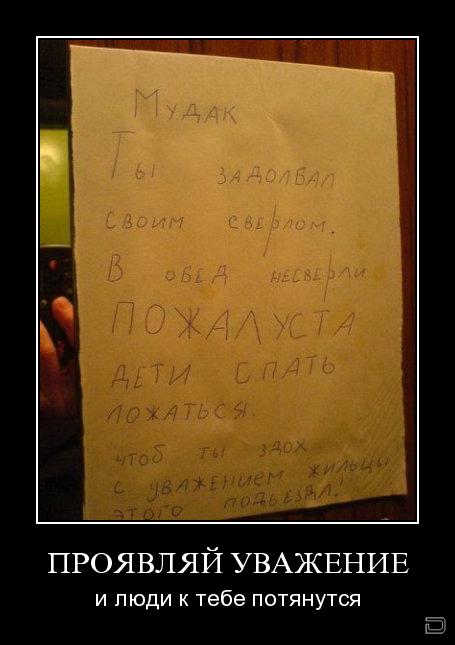 Мудак
Ты задолбал
своим сверлом.
В обед несверли
ПОЖАЛУСТА
дети спать
ложаться.
чтоб ты здох
с уважением жильцы
этого подьезда!
ПРОЯВЛЯЙ УВАЖЕНИЕ
и люди к тебе потянутся